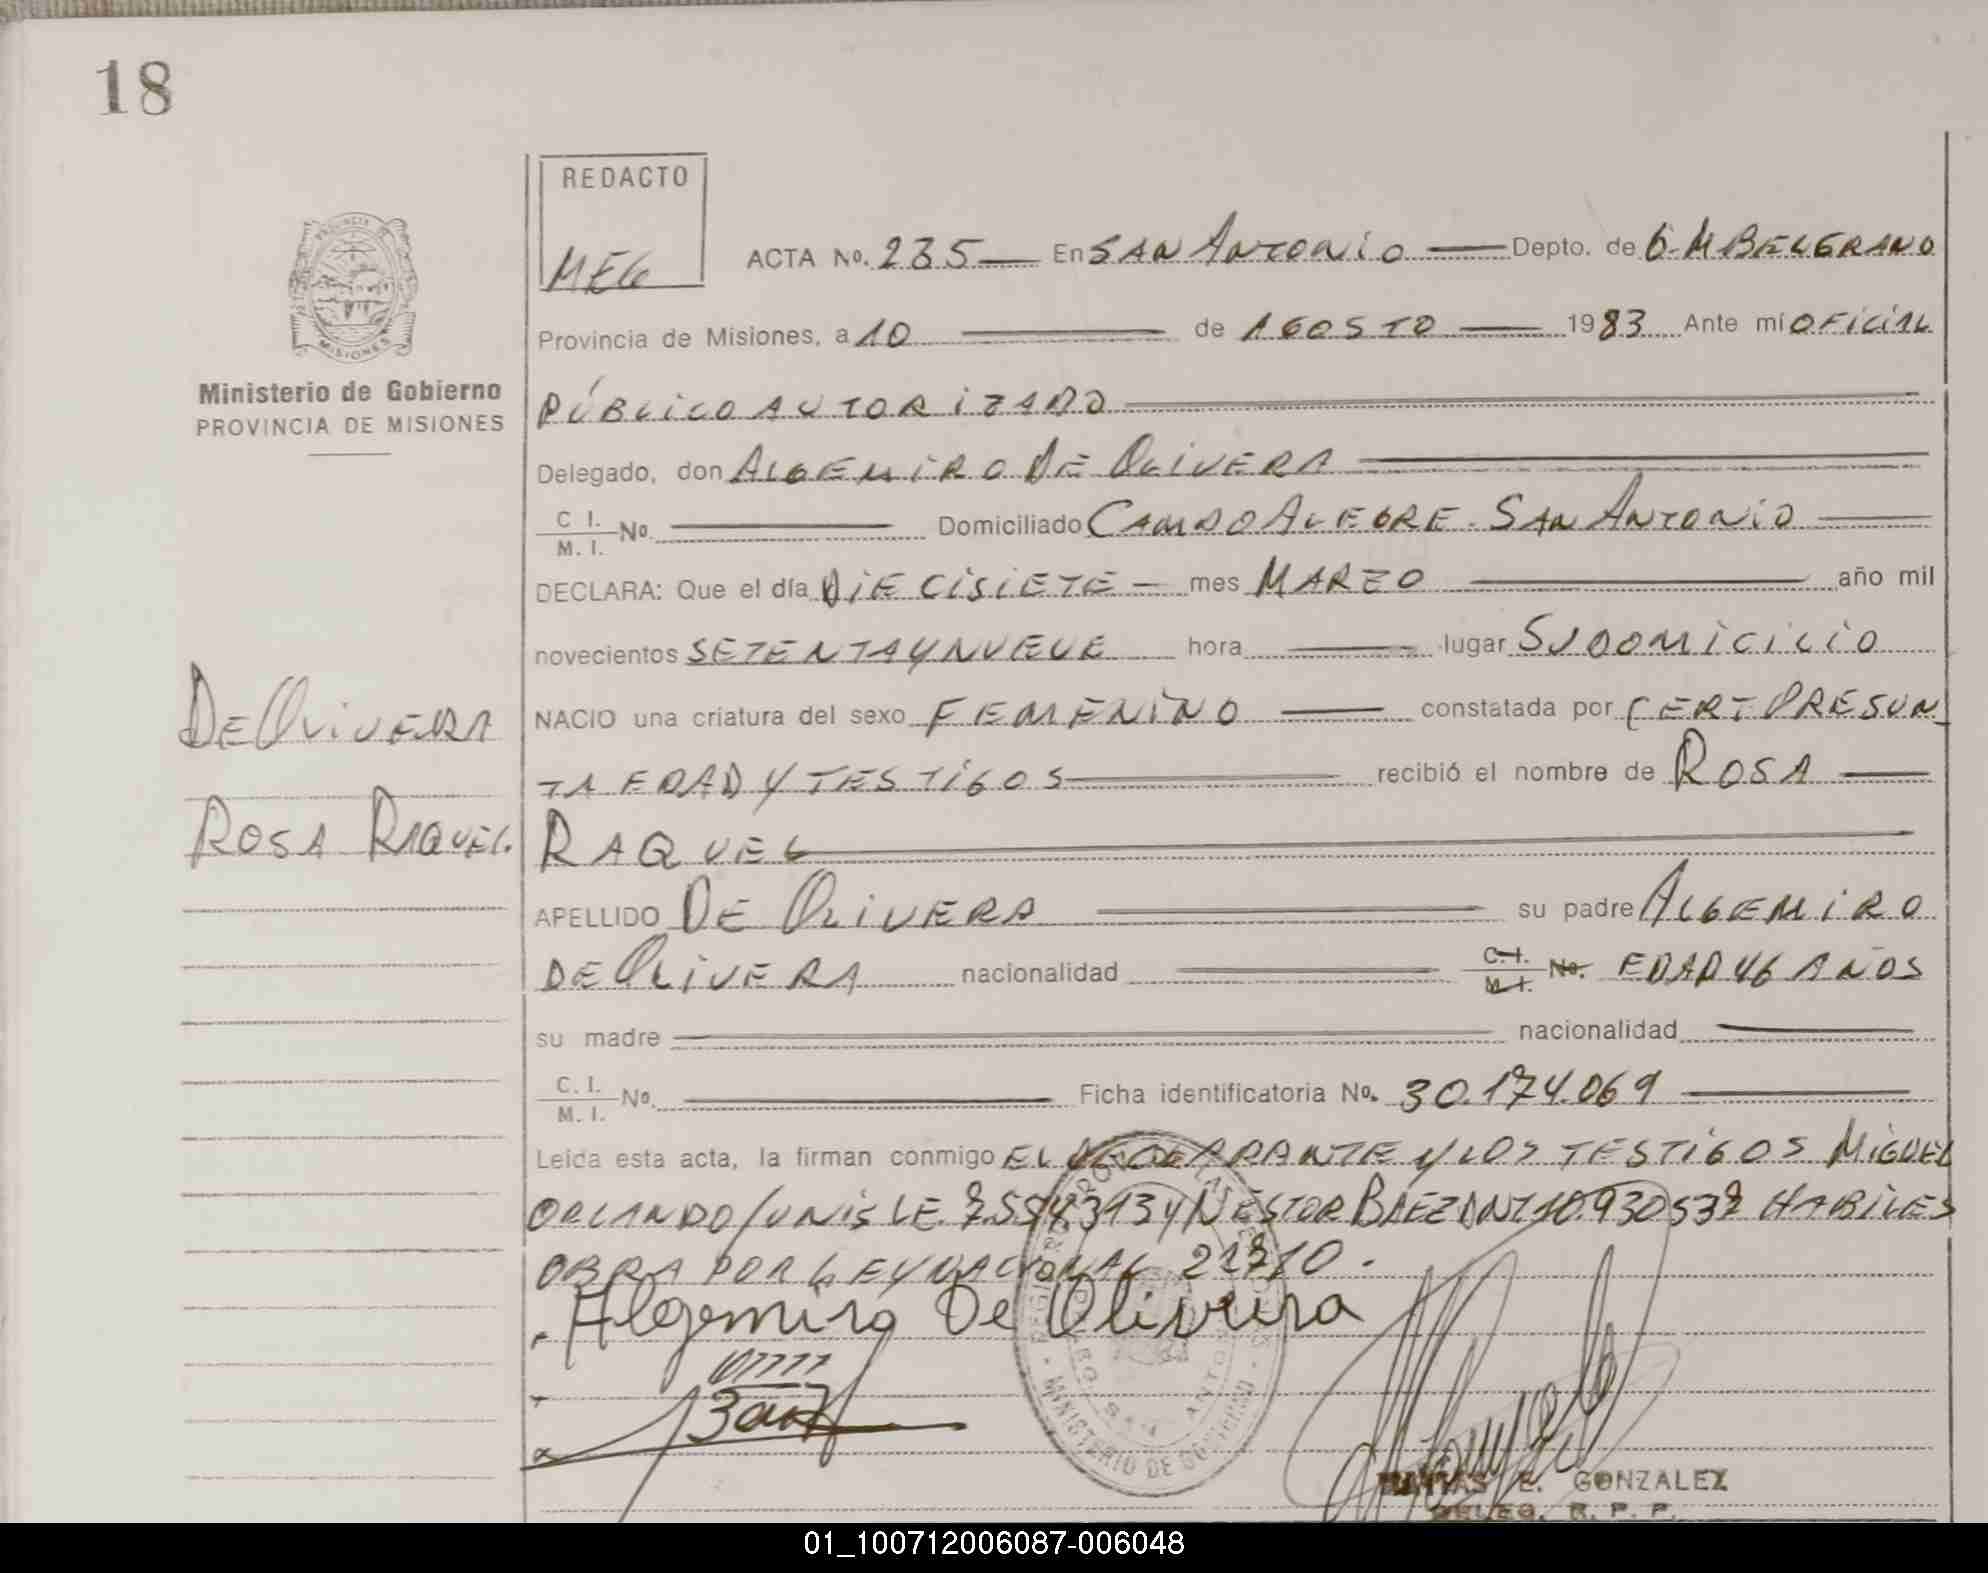 18
REDACTO
MEG
ACTA No. 235 En SAN ANTONIO Depto. de G. M BELGRANO
Provincia de Misiones, a 10 de AGOSTO 1983 Ante mi OFICIAL
PÚBLICO AUTORIZADO
Delegado, don ALGEMIRO DE OLIVERA
C I. / M. I. No. Domiciliado CAMPO ALEGRE. SAN ANTONIO
DECLARA: Que el día DIECISIETE mes MARZO año mil
novecientos SETENTA Y NUEVE hora lugar SU DOMICILIO
NACIO una criatura del sexo FEMENINO constatada por CERT PRESUN_
TA EDAD Y TESTIGOS recibió el nombre de ROSA
RAQUEL
APELLIDO DE OLIVERA su padre ALGEMIRO
DE OLIVERA nacionalidad C.I. / M.I. No. EDAD 46 AÑOS
su madre nacionalidad
C. I. / M. I. No. Ficha identificatoria No. 30.174.069
Leída esta acta, la firman conmigo EL DECLARANTE Y LOS TESTIGOS MIGUEL
ORLANDO LE. Y NESTOR BAEZ DNI 10.930.537 HABILES
OBRA POR LEY NACIONAL
Algemiro De Oliveira
Baez
PROVINCIA DE
MISIONES
Ministerio de Gobierno
PROVINCIA DE MISIONES
DE OLIVERA
ROSA RAQUEL.
REGISTRO PROV. DE LAS PERSONAS
MINISTERIO DE GOBIERNO
SAN ANTONIO
E. GONZALEZ
DELEG. R. P. P.
01_100712006087-006048